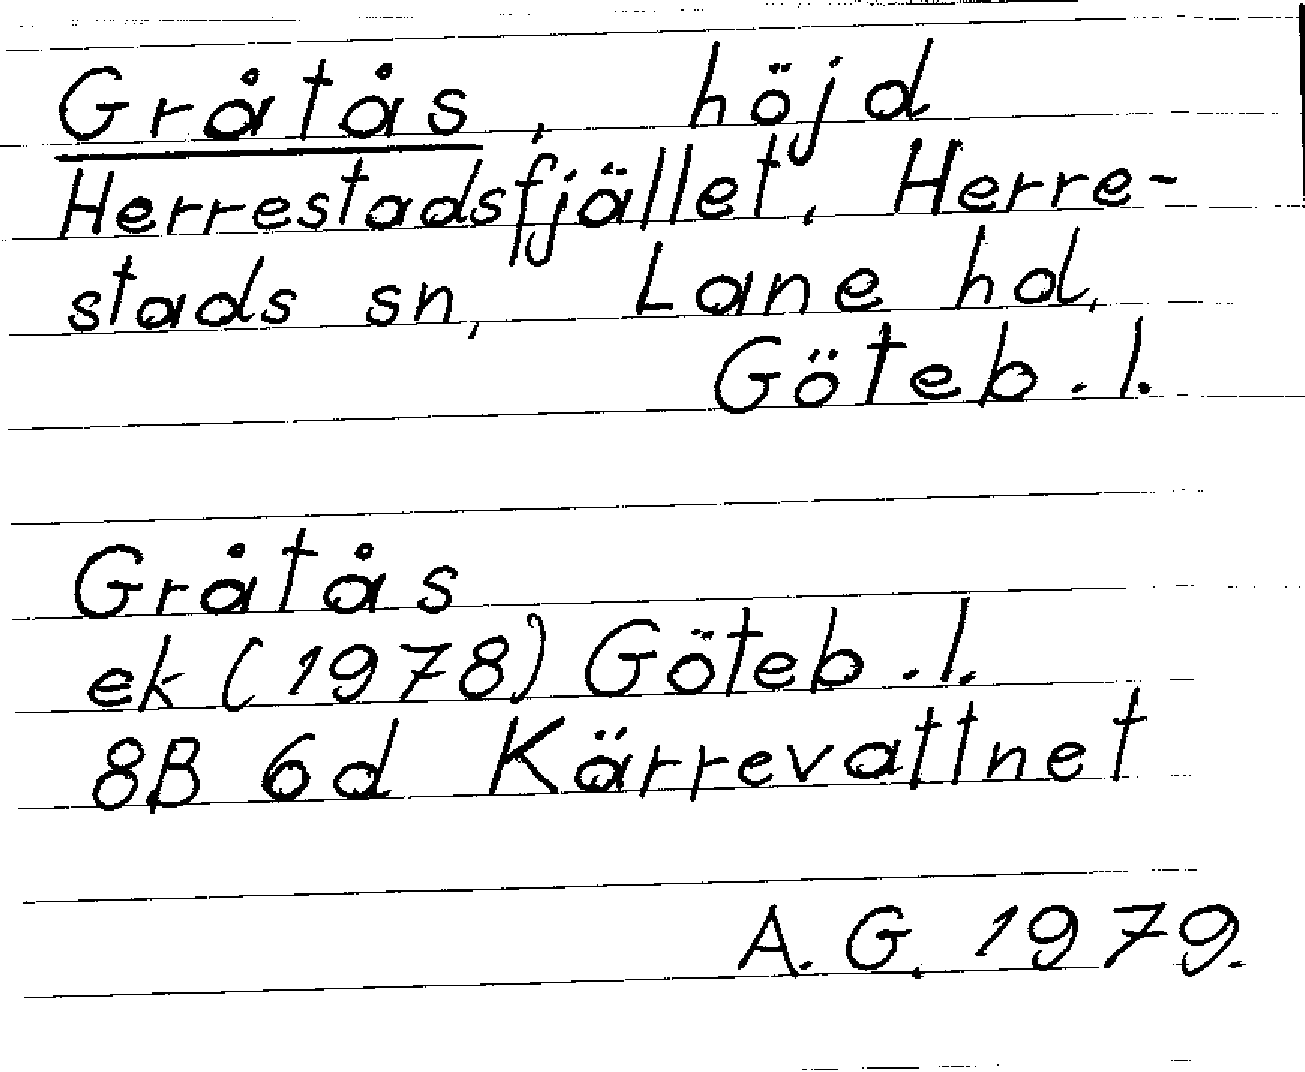 Gråtås, höjd
Herrestadsfjället, Herre-
stads sn, Lane hd,
Göteb. l.
Gråtås
ek (1978) Göteb. l.
8B 6d Kärrevattnet
A. G. 1979.